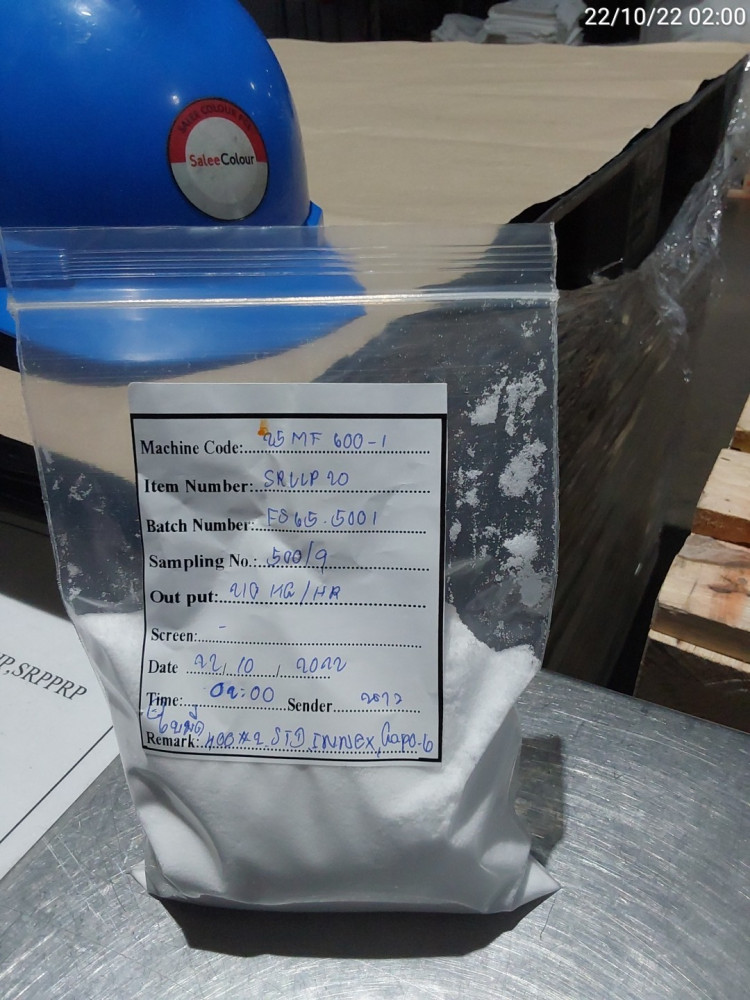 22/10/22 02:00
SALEE COLOUR PLC
SaleeColour
Machine Code: 25 MF 600-1
Item Number: SRLLP 20
Batch Number: F865.5001
Sampling No.: 500/9
Out put: 210 KG/HR
Screen: -
Date 22/10/2022
Time: 02:00 Sender 2072
Remark: 400#2 STD, INNEX,
P,SRPPRP